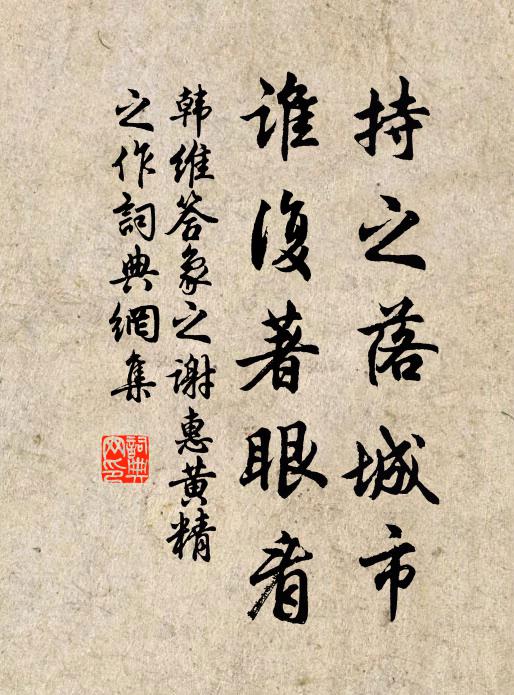 持之落城市
誰復著眼看
韩維答象之谢惠黄精
之作詞典網集
詞典
网印